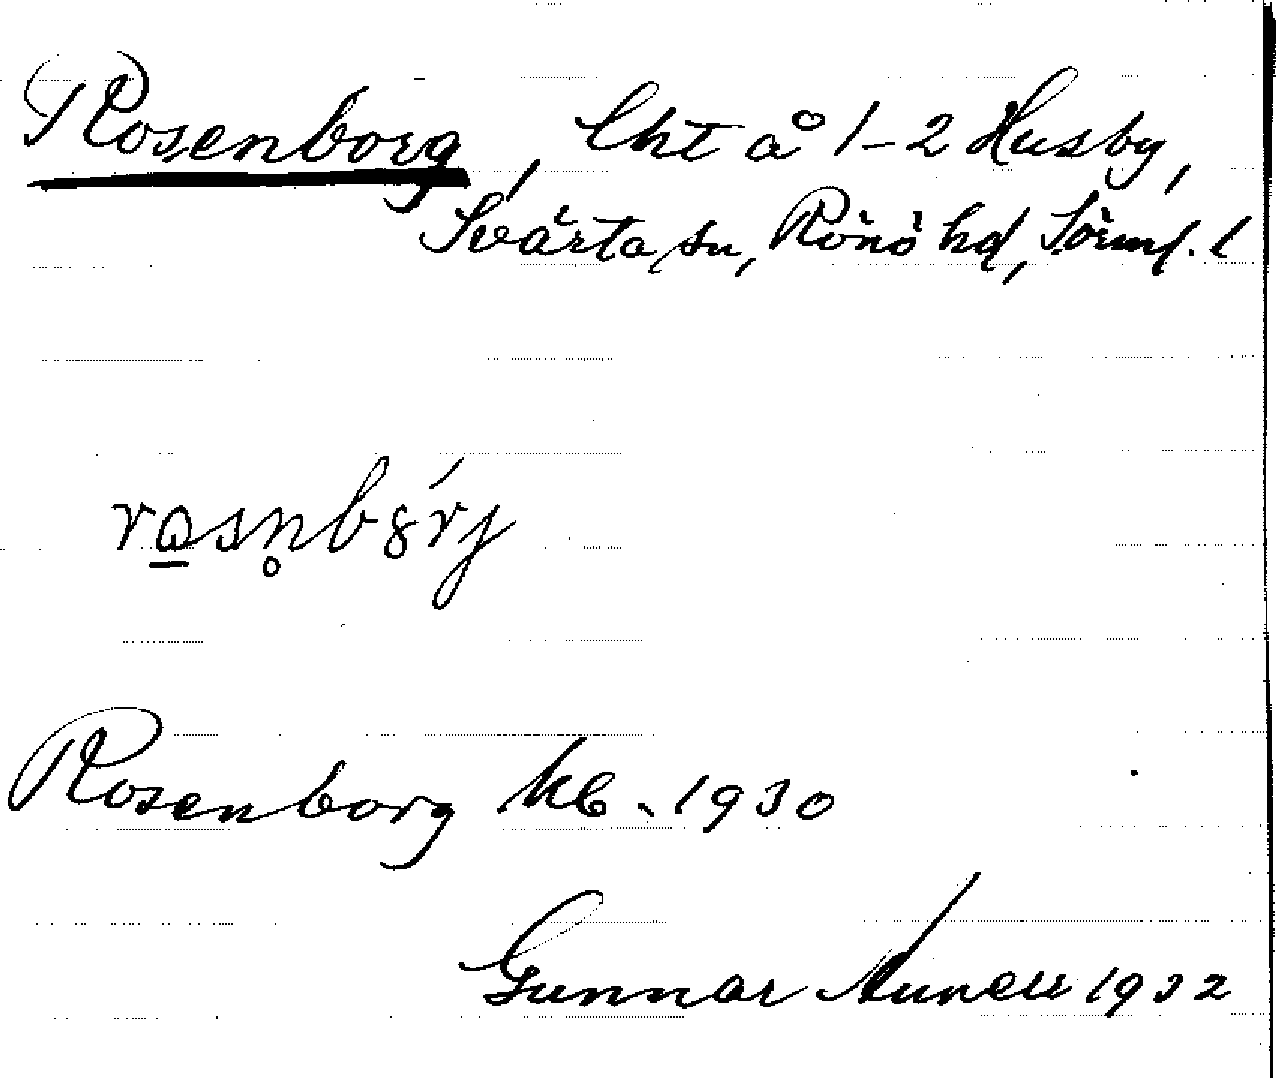 Rosenborg, lht å 1-2 Husby,
Svärta sn, Rönö hd, Sörml. l
Rosenborg kb. 1930
Gunnar 1932